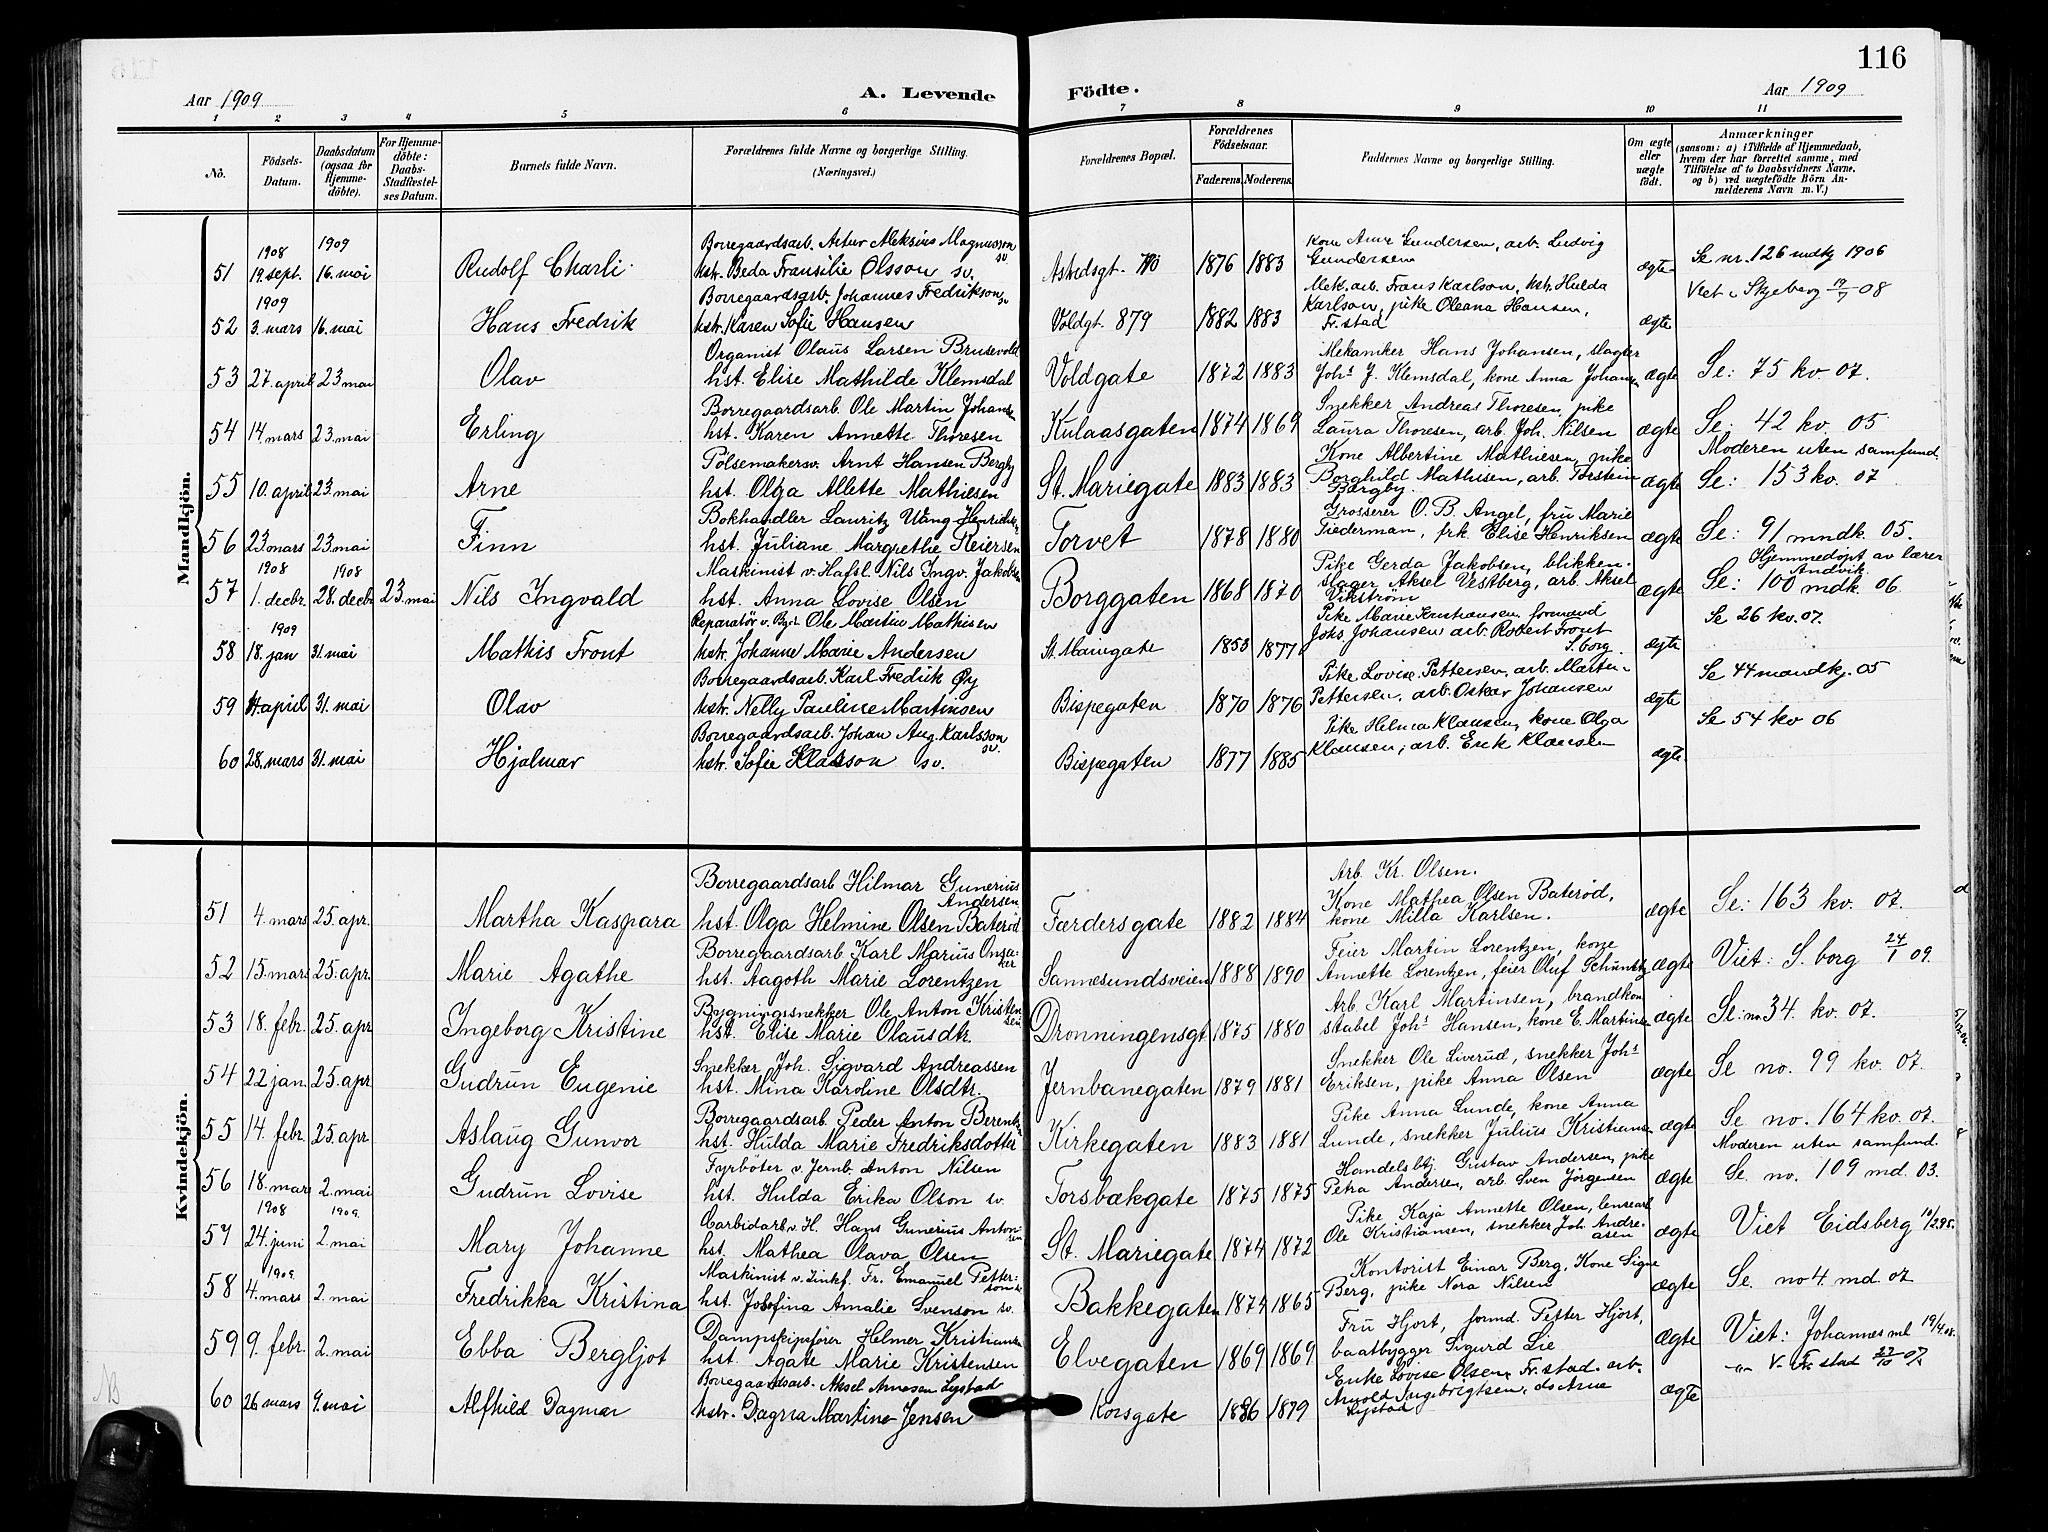 116
Aar 1909
A. Levende Födte.
Aar 1909
1 2 3 4 5 6 7 8 9 10 11
No.
Födsels-Datum.
Daabsdatum (ogsaa for Hjemme-döbte).
For Hjemme-döbte: Daabs-Stadfæstel-ses Datum.
Barnets fulde Navn.
Forældrenes fulde Navne og borgerlige Stilling. (Næringsvei.)
Forældrenes Bopæl.
Forældrenes Födselsaar.
Faderens. Moderens.
Faddernes Navne og borgerlige Stilling.
Om ægte eller uægte födt.
Anmærkninger
(saasom: a) i Tilfælde af Hjemmedaab, hvem der har forrettet samme, med Tilföielse af to Daabsvidners Navne, og b) ved uægtefödte Börn An-melderens Navn m. V.)
Mandkjön.
1908 1909 Borregaardsarb. Artur Aleksius Magnusson sv Kone Anne Gundersen, arb. Ludvig
51 19. sept. 16. mai Rudolf Charli hstr. Beda Fransilie Olsson sv. 1876 1883 Gundersen ægte Se nr. 126 mdkj 1906
1909 Borregaardsarb. Johannes Fredrikson sv Mek. arb. Frans Karlson, hst. Hulda Viet i Skjeberg 19/7 08
52 3. mars 16. mai Hans Fredrik hstr. Karen Sofie Hansen Voldgt. 879 1882 1883 Karlson, pike Oleana Hansen, Fr.stad ægte
Organist Olaus Larsen Brusevold Mekaniker Hans Johansen, slagter
53 27. april 23 mai Olav hst. Elise Mathilde Klemsdal Voldgate 1872 1883 Johs J. Klemsdal, kone Anna Johansen ægte Se: 75 kv. 07.
Borregaardsarb. Ole Martin Johansen Snekker Andreas Thoresen, pike
54 14. mars 23. mai Erling hst. Karen Annette Thoresen Kulaasgaten 1874 1869 Laura Thoresen, arb. Joh. Nilsen ægte Se: 42 kv. 05
Pölsemakersv. Arnt Hansen Bergby Kone Albertine Mathiesen, pike Moderen uten samfund.
55 10. april 23. mai Arne hst. Olga Allette Mathiesen St. Mariegate 1883 1883 Borghild Mathisen, arb. Torstein Bergby. ægte Se: 153 kv. 07
Bokhandler Lauritz Wang Henriksen Grosserer O. B. Angel, fru Marie
56 23. mars 23. mai Finn hst. Juliane Margrethe Reiersen Torvet 1878 1880 Tiederman, frk. Elise Henriksen ægte Se: 91 mndk. 05.
1908 1908 Maskinist v. Hafsl. Nils Ingv. Jakobsen Pike Gerda Jakobsen, blikken- Hjemmedöpt av lærer Andvik.
57 1. decbr. 28. decbr 23. mai Nils Ingvald hst. Anna Lovise Olsen Borggaten 1868 1870 slager Aksel Vestberg, arb. Aksel Vikström ægte Se: 100 mdk. 06.
1909 Reparatör v. Byd Ole Martin Mathisen Pike Marie Kristiansen, formand Se 26 kv. 07.
58 18. jan 31. mai Mathis Front hstr. Johanne Marie Andersen St. Mariegate 1853 1877 Johs. Johansen arb. Robert Front S.borg. ægte
Borregaardsarb. Karl Fredrik Öy Pike Lovise Pettersen, arb. Marten Se 44 mandkj. 05
59 4. april 31. mai Olav hstr. Nelly Pauline Martinsen Bispegaten 1870 1876 Pettersen, arb. Oskar Johansen ægte
Borregaardsarb. Johan Aug. Karlsson sv. Pike Helma Klausen, kone Olga Se 54 kv 06
60 28. mars 31. mai Hjalmar hstr. Sofie Klasson sv. Bispegaten 1877 1885 Klausen, arb. Erik Klausen ægte
Kvindekjön.
Borregaardsarb Hilmar Gunerius Andersen Arb. Kr. Olsen.
51 4. mars 25. apr. Martha Kaspara hst. Olga Helmine Olsen Bateröd Færdersgate 1882 1884 Kone Mathea Olsen Bateröd, kone Milla Karlsen. ægte Se: 163 kv. 07.
Borregaardsarb Karl Marius Onsaker Feier Martin Lorentzen, kone
52 15. mars 25. apr. Marie Agathe hst. Aagoth Marie Lorentzen Sannesundsveien 1888 1890 Annette Lorentzen, feier Oluf Schuneltz ægte Viet: S.borg 24/1 09.
Bygningssnekker Ole Anton Kristensen Arb. Karl Martinsen, brandkon
53 18. febr. 25. apr Ingeborg Kristine hst. Elise Marie Olausdtr. Dronningensgt 1875 1880 stabel Johs Hansen, kone E. Martinsen ægte Se: no 34. kv. 07.
Snekker Joh. Sigvard Andreassen Snekker Ole Liverud, snekker Johs
54 22 jan. 25. apr Gudrun Eugenie hst. Mina Karoline Olsdtr. Jernbanegaten 1879 1881 Eriksen, pike Anna Olsen ægte Se no. 99 kv. 07.
Borregaardsarb. Peder Anton Berentz Pike Anna Lunde, kone Anna
55 14. febr. 25. apr Aslaug Gunvor hst. Hulda Marie Fredriksdotter Kirkegaten 1883 1881 Lunde, snekker Julius Kristiansen ægte Se no. 164 kv. 07.
Fyrböter v. Jernb. Anton Nilsen Handelsbtj. Gustav Andersen, pike Moderen uten samfund.
56 18. mars 2. mai Gudrun Lovise hst. Hulda Erika Olson sv. Torsbækgate 1875 1875 Petra Andersen, arb. Sven Jörgensen ægte Se no. 109 md. 03.
1908 1909. Carbidarb v. H. Hans Gunerius Antonsen Pike Kaja Annette Olsen, lensearb
57 24. juni 2. mai Mary Johanne hst. Mathea Olava Olsen St. Mariegate 1874 1872 Ole Kristiansen, snekker Joh. Andreasen ægte Viet Eidsberg 10/2 95.
1909. Maskinist v. Zinkf. Fr. Emanuel Petterson Kontorist Einar Berg, Kone Signe
58 4. mars 2. mai Fredrikka Kristina hst. Josefina Amalie Svenson sv. Bakkegaten 1874 1865 Berg, pike Nora Nilsen ægte Se no 4. md. 07
Dampskipsförer Helmer Kristiansen Fru Hjort, formd. Petter Hjort,
59 9. febr. 2. mai Ebba Bergljot hst. Agate Marie Kristensen Elvegaten 1869 1869 baatbygger Sigurd Lie ægte Viet: Johannes ml 19/4 08.
Borregaardsarb. Aksel Arnesen Lystad Enke Lovise Olsen, Fr.stad. arb. V. Fr.stad 27/10 07
60 26 mars 9. mai Alfhild Dagmar hstr. Dagna Martine Jensen Korsgate 1886 1879 Arnold Ingebrigtsen, do Arne Lystad ægte
NB